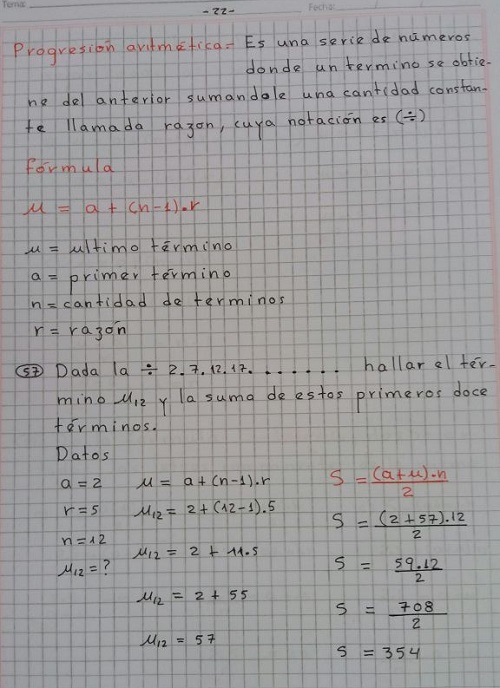 Tema: Fecha:
-22-
Progresión aritmética= Es una serie de números
donde un termino se obtie-
ne del anterior sumandole una cantidad constan-
te llamada razon, cuya notación es (÷)
fórmula
u = a + (n-1).r
u = ultimo término
a = primer término
n = cantidad de terminos
r = razón
57 Dada la ÷ 2.7.12.17. . . . . . . hallar el tér-
mino u₁₂ y la suma de estos primeros doce
términos.
Datos
a = 2 u = a + (n-1).r S = (a+u).n / 2
r = 5 u₁₂ = 2 + (12-1).5 S = (2+57).12 / 2
n = 12 u₁₂ = 2 + 11.5 S = 59.12 / 2
u₁₂ = ? u₁₂ = 2 + 55 S = 708 / 2
u₁₂ = 57 S = 354